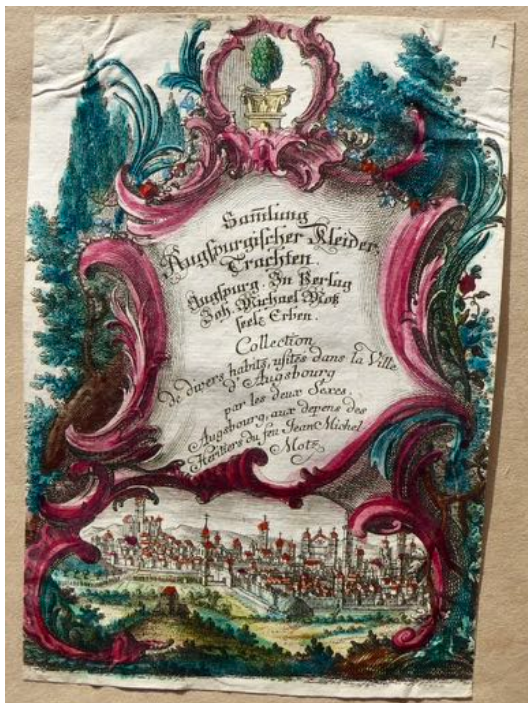 1
Sam̅lung
Augspurgischer Kleider-
Trachten.
Augspurg. In Verlag
Joh. Michael Motz
seel: Erben.
Collection
de divers habits, usites dans la Ville
d'Augsbourg
par les deux Sexes.
Augsbourg, aux depens des
Heritiers du feu Jean Michel
Motz